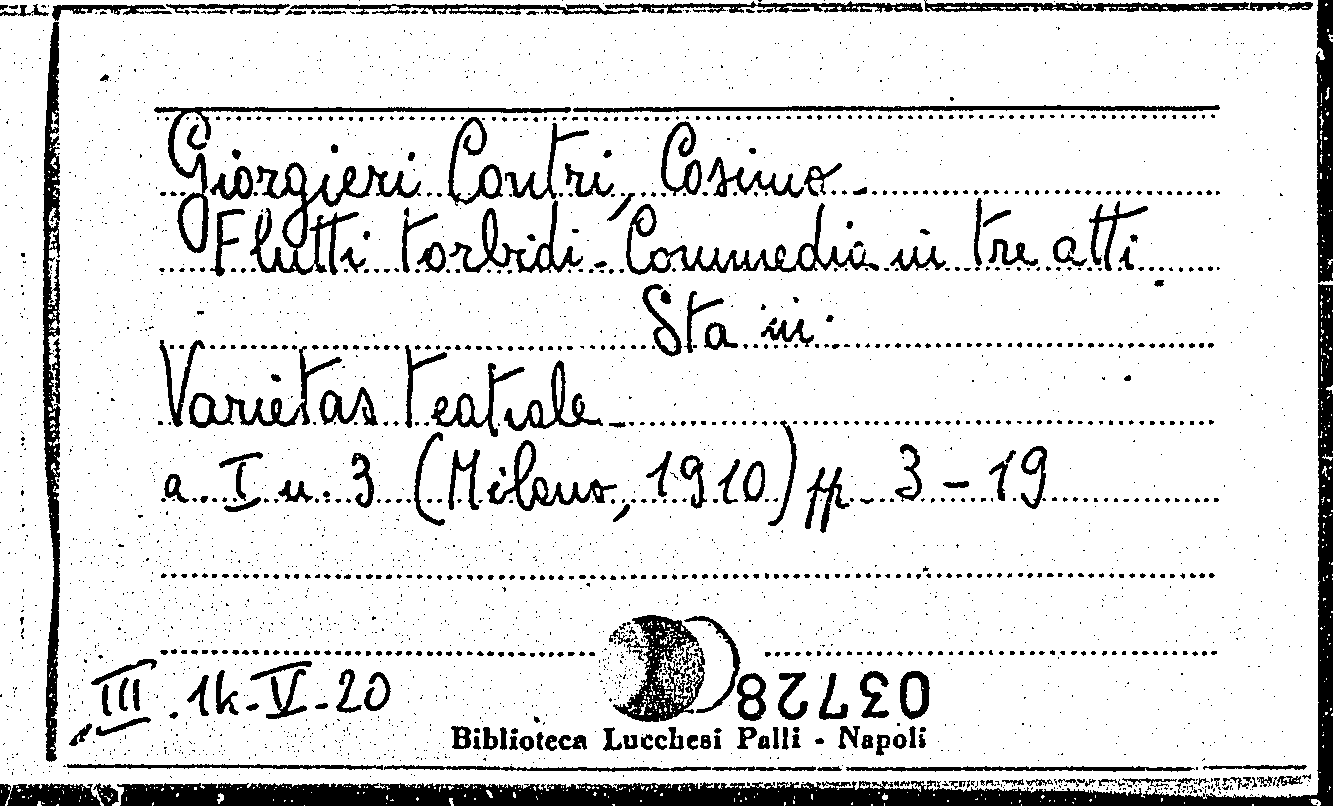 Giorgieri Contri, Cosimo -
Flutti torbidi - Commedia in tre atti
Sta in:
Varietas teatrale -
a. I n. 3 (Milano, 1910) pp. 3 - 19
III . 1k - V - 20
03728
Biblioteca Lucchesi Palli - Napoli